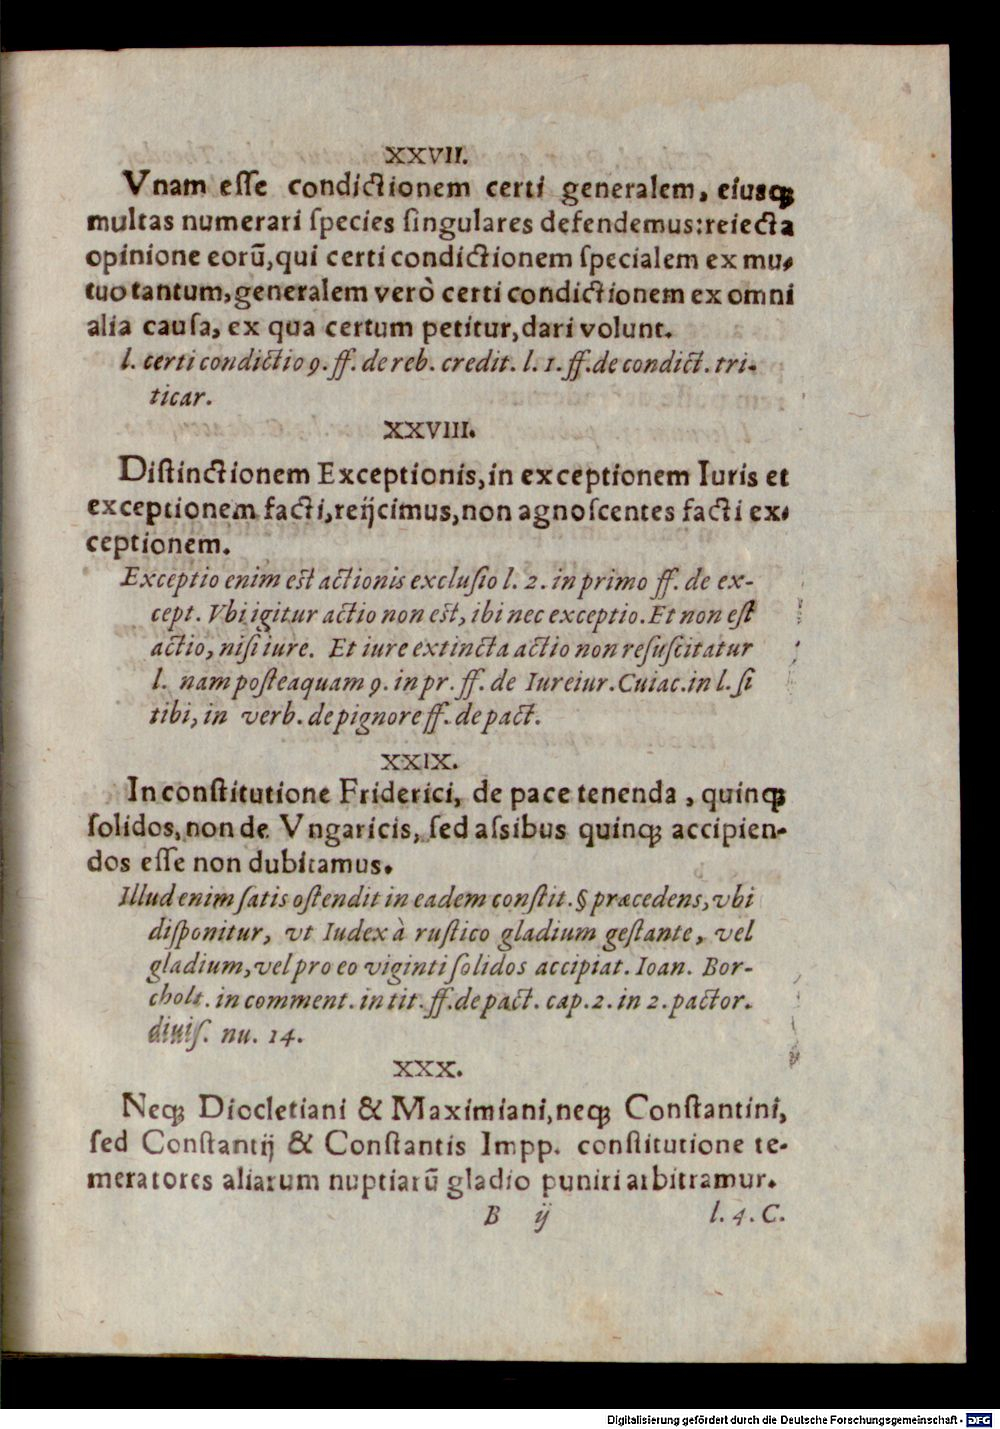 XXVII.
Vnam eſſe condictionem certi generalem, eiusq́;
multas numerari ſpecies ſingulares defendemus: reiecta
opinione eorũ, qui certi condictionem ſpecialem ex mu-
tuo tantum, generalem verò certi condictionem ex omni
alia cauſa, ex qua certum petitur, dari volunt.
l. certi condictio 9. ff. de reb. credit. l. 1. ff. de condict. tri-
ticar.
XXVIII.
Diſtinctionem Exceptionis, in exceptionem Iuris et
exceptionem facti, reijcimus, non agnoſcentes facti ex-
ceptionem.
Exceptio enim est actionis excluſio l. 2. in primo ff. de ex-
cept. Vbi igitur actio non est, ibi nec exceptio. Et non eſt
actio, niſi iure. Et iure extincta actio non reſuſcitatur
l. nam poſteaquam 9. in pr. ff. de Iureiur. Cuiac. in l. ſi
tibi, in verb. de pignore ff. de pact.
XXIX.
In conſtitutione Friderici, de pace tenenda, quinq;
ſolidos, non de Vngaricis, ſed aſsibus quinq; accipien-
dos eſſe non dubitamus.
Illud enim ſatis oſtendit in eadem conſtit. § præcedens, vbi
diſponitur, vt Iudex à ruſtico gladium geſtante, vel
gladium, vel pro eo viginti ſolidos accipiat. Ioan. Bor-
cholt. in comment. in tit. ff. de pact. cap. 2. in 2. pactor.
diuiſ. nu. 14.
XXX.
Neq; Diocletiani & Maximiani, neq; Conſtantini,
ſed Conſtantij & Conſtantis Impp. conſtitutione te-
meratores aliarum nuptiarũ gladio puniri arbitramur.
B ij l. 4. C.
Digitalisierung gefördert durch die Deutsche Forschungsgemeinschaft - DFG